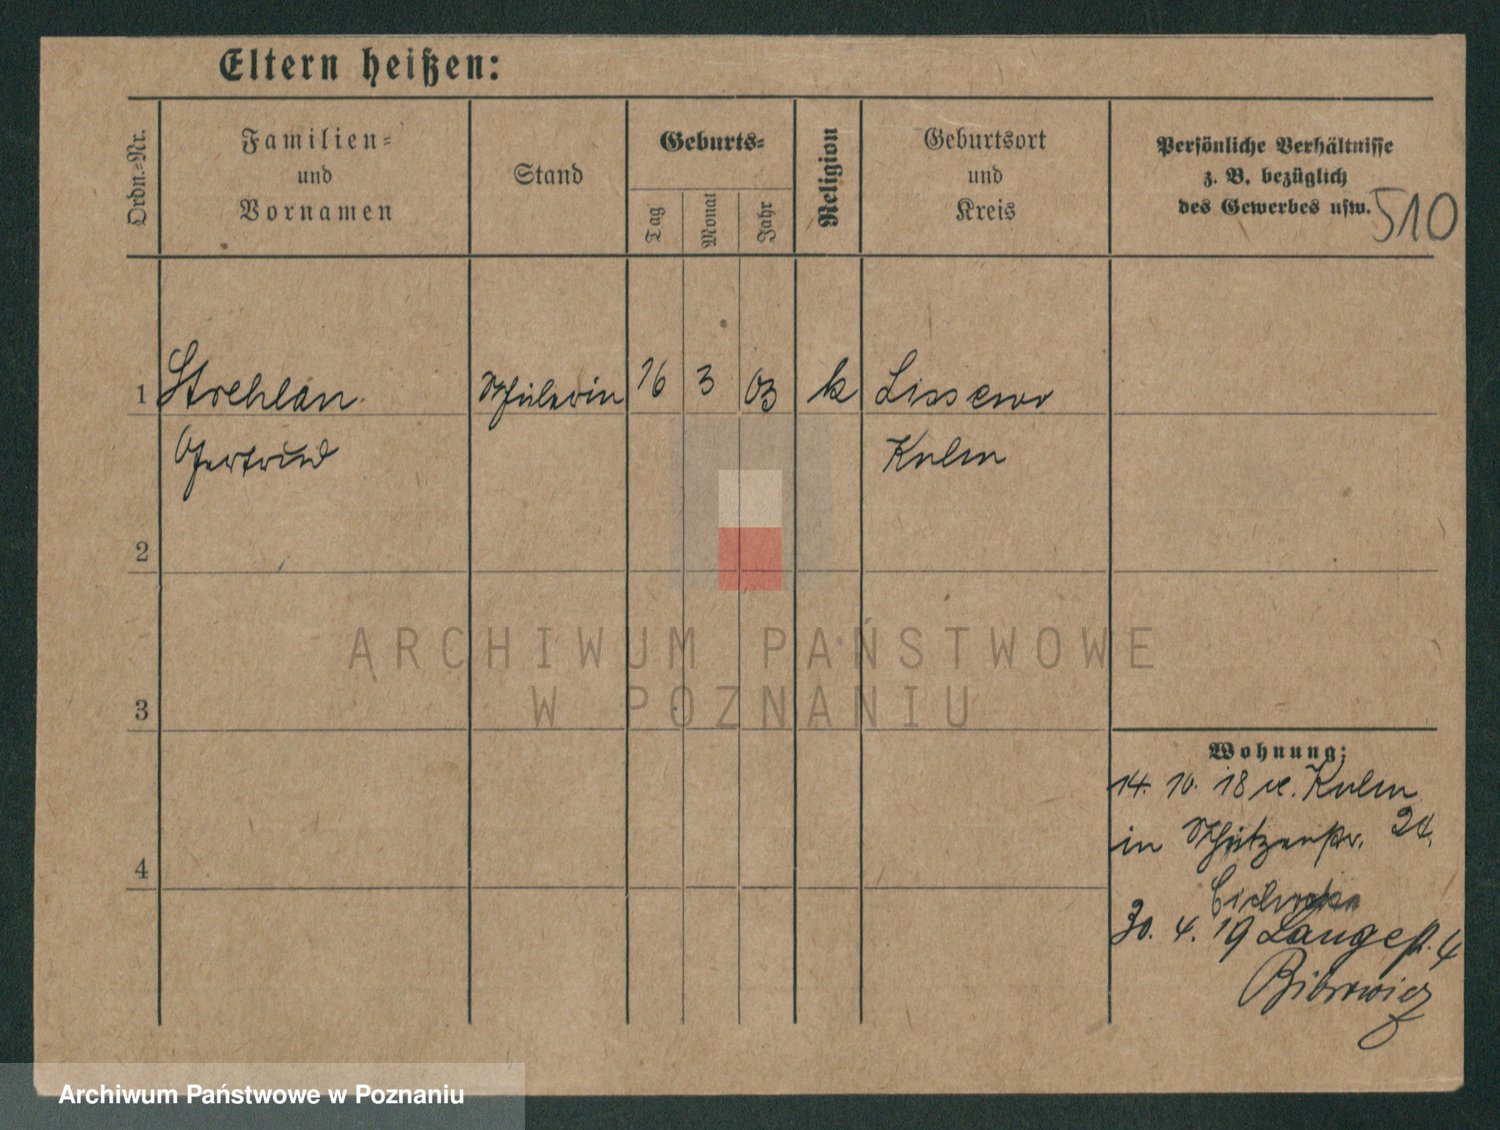 Eltern heißen:
Ordn.-Nr.
Familien- und Vornamen
Stand
Geburts-
Tag
Monat
Jahr
Religion
Geburtsort und Kreis
Persönliche Verhältnisse
z. B. bezüglich
des Gewerbes usw.
510
1 Strehlau Schülerin 16 3 03 k Lissewo
Gertrud Kulm
2
ARCHIWUM PAŃSTWOWE
W POZNANIU
3
Wohnung:
14. 10. 18 v. Kulm
in Schützenstr. 24.
4
30. 4. 19 Langestr. 4
Bibrowicz
Archiwum Państwowe w Poznaniu